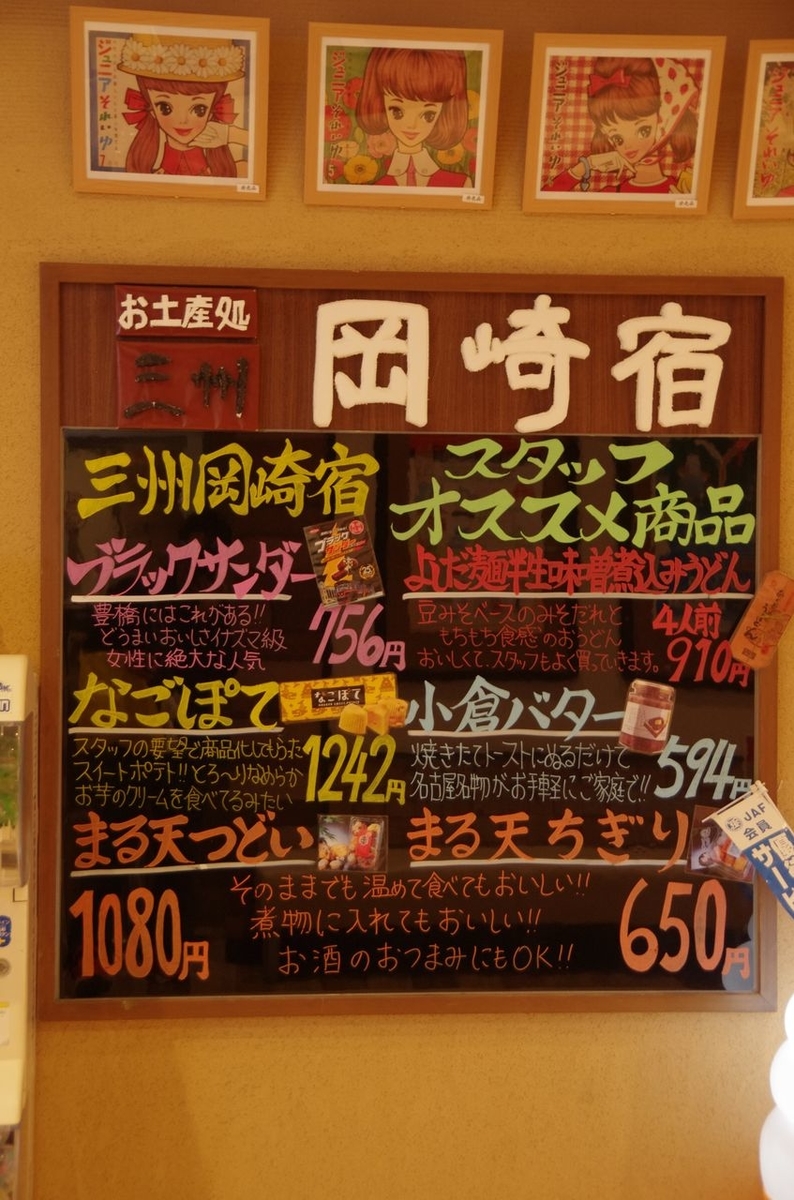 ジュニアそれいゆ
7
ジュニアそれいゆ
5
ジュニアそれいゆ
お土産処
三州
岡崎宿
三州岡崎宿
スタッフ
オススメ商品
ブラックサンダー
豊橋にはこれがある!!
どうまいおいしさイナズマ級
女性に絶大な人気
756円
よしだ麺半生味噌煮込みうどん
豆みそベースのみそだれと
もちもち食感のおうどん
おいしくて、スタッフもよく買っていきます。
4人前
910円
なごぽて
なごぽて
スタッフの要望で商品化してもらった
スイートポテト!!とろ〜りなめらか
お芋のクリームを食べてるみたい
1242円
小倉バター
焼きたてトーストにぬるだけで
名古屋名物がお手軽にご家庭で!!
594円
まる天つどい
1080円
まる天ちぎり
650円
そのままでも温めて食べてもおいしい!!
煮物に入れてもおいしい!!
お酒のおつまみにもOK!!
JAF
会員